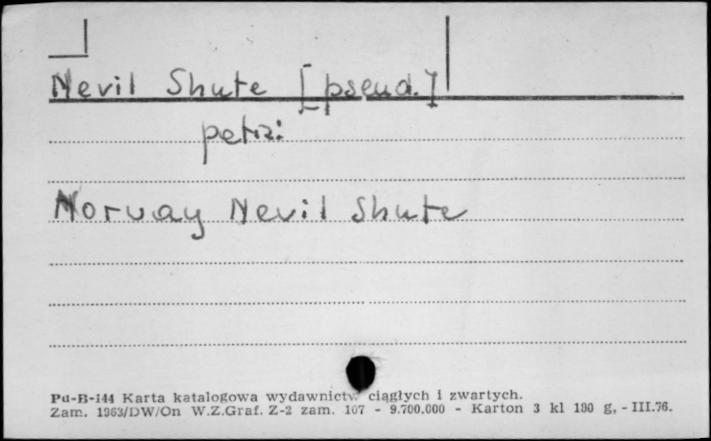 Nevil Shute [pseud.]
patrz:
Norway Nevil Shute
Pu-B-144 Karta katalogowa wydawnictw ciągłych i zwartych.
Zam. 1963/DW/On W.Z.Graf. Z-2 zam. 107 - 9.700.000 - Karton 3 kl 190 g, - III.76.